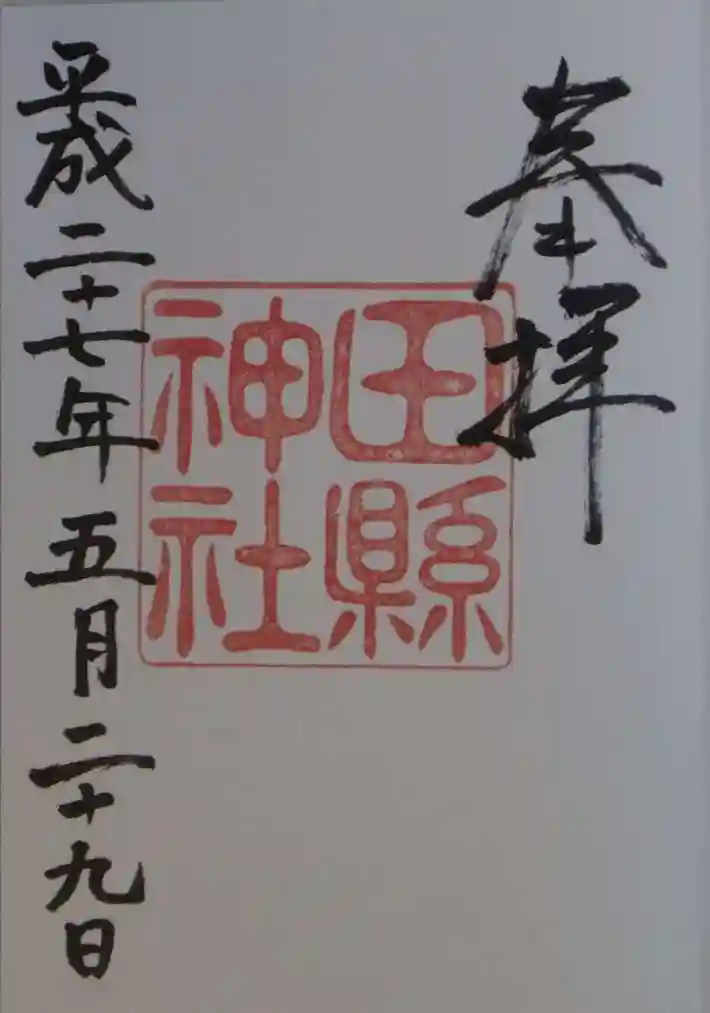 奉拝
田縣
神社
平成二十七年五月二十九日